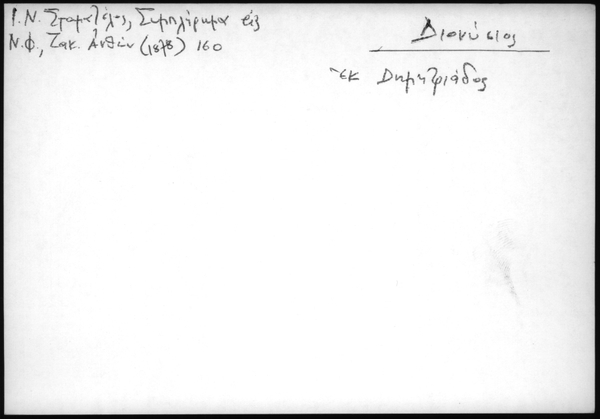 Ι.Ν. Σταματέλος, Συμπλήρωμα εἰς
Ν.Φ., Ζακ. Ἀνθών (1878) 160
Διονύσιος
ἐκ Δημητριάδος